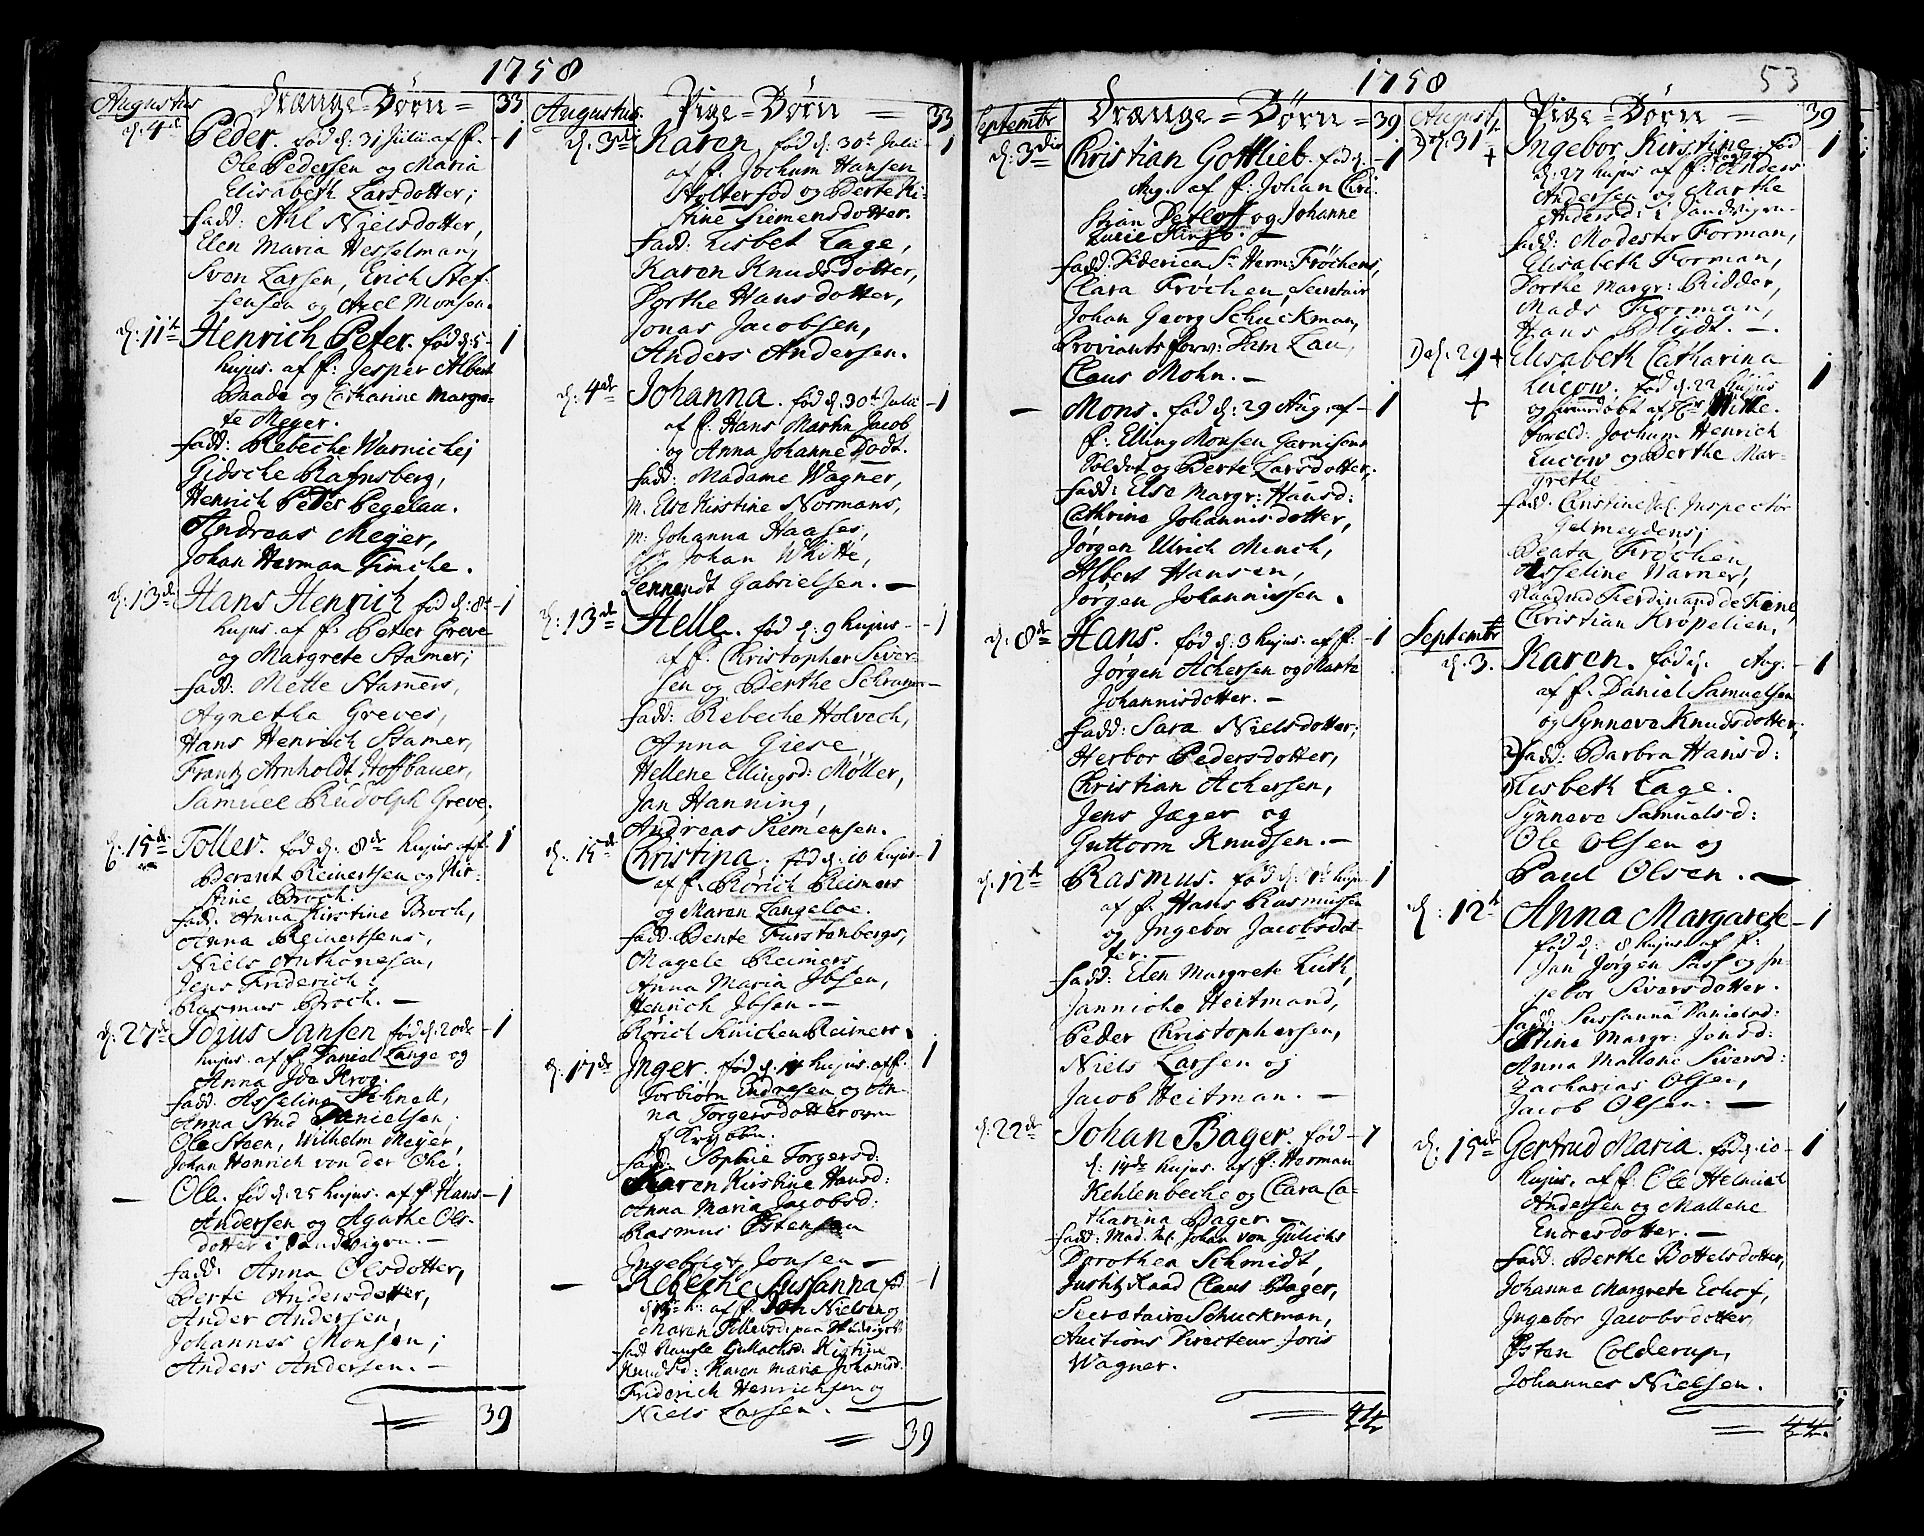 1758
Augustus Drænge = Børn = 33
d. 4de Peder. fød d. 31 Julii af f. - 1
Ole Pedersen og Maria
Elisabeth Larsdotter;
fadd: Ahl Nielsdotter,
Elen Maria Hesselman,
Sven Larsen, Erich Stef-
sensen og Axel Monsen.
d. 11te Henrich Peter. fød d. 5 - 1
hujus. af f: Jesper Albert
Baade og Catharine Margre-
te Meyer.
fadd: Rebeche Warniche,
Gidsche Rafnsberg,
Henrich Peter Pegelau.
Andreas Meyer,
Johan Herman Timche.
d. 13de Hans Henrich fød d. 8de - 1
hujus. af f: Peter Greve
og Margrete Stamer;
fadd: Mette Stamers,
Agnetha Greves,
Hans Henrich Stamer,
Frantz Arnholdt Hoffbauer,
Samuel Rudolph Greve.
d. 15de Toller. fød d. 8de hujus af f. 1
Berent Reinertsen og Kir-
stine Broch.
fadd. Anna Kirstine Broch,
Anna Reinertsens,
Niels Anthonesen,
Jens Friderich
Rasmus Broch. -
d. 27de Joris Jansen fød d. 20de - 1
hujus. af f. Daniel Lange og
Anna Ida Krog.
fadd. Asseline Schnell,
Anna Stud Danielsen,
Ole Steen, Wilhelm Meyer,
Johan Henrich von der Ohe.
- Ole. fød d. 25 hujus. af f. Hans - 1
Andersen og Agathe Ols-
dotter i Sandvigen. -
fadd: Anna Olsdotter,
Berte Andersdotter,
Ander Andersen,
Johannes Monsen;
Anders Andersen. -
39
Augustus. Pige = Børn = 33
d. 3die Karen. fød d: 30te Julii 1
af f. Jochum Hansen
Holterfod og Berte Ki-
stine Siemensdotter.
fadd: Lisbet Lage,
Karen Knudsdotter,
Dorthe Hansdotter,
Jonas Jacobsen,
Anders Andersen.
d: 4de Johanna. fød d. 30te Julii - 1
af f. Hans Martin Jacob
og Anna Johanne Dodt.
fadd: Madame Wagner,
M. Else Kirstine Normans,
M: Johanna Haases,
Johan Whitte,
Lennendt Gabrielsen. -
d. 13de Helle. fød d. 9 hujus - 1
af f. Christopher Siver-
sen og Berthe Schram -
fadd: Rebeche Holvech,
Anna Giese,
Hellene Ellingsd: Møller,
Jan Hanning,
Andreas Siemensen.
d. 15de Christina. fød d. 10 hujus - 1
af f. Rörich Reimers
og Maren Langeloe.
fadd. Bente Furstenbergs,
Magele Reimers
Anna Maria Ibsen,
Henrich Ibsen. -
Rörich Knichen Reimers.
d. 17de Inger. fød d. 14 hujus. af f. 1
Torbiørn Endresen og An-
na Torgersdotter oven
fadd. Sophie Torgersd:
Karen Kirstine Hansd:
Anna Maria Jacobsd:
Rasmus Østensen
Ingebrigt Jonsen -
- Rebeche Susanna fød - 1
h: af f. Joh Nielsen og
Maren
fadd
Knudsd: Karen Maria Johansd.
Friderich Henrichsen og
Niels Larsen. -
39
1758 53
Septembr Drænge = Børn = 39
d: 3die Christian Gottlieb. fød d. - 1
Aug. af f: Johan Chri-
stian Detloff og Johanne
Lucie
fadd: Friderica Sr Herm: Fröchens,
Clara Fröchen, Secretair
Johan Georg Schuckman,
Proviants forv: Dam Lau,
Claus Mohn. -
- Mons. fød d: 29 Aug. af - 1
f. Elling Monsen Garnisons
Soldat og Berte Larsdotter;
fadd: Else Margr: Hansd:
Cathrine Johannisdotter,
Jørgen Ulrich Minch,
Albert Hansen,
Jørgen Johannissen.
d: 8de Hans. fød d. 3 hujus. af f: - 1
Jørgen Achersen og Marte
Johannisdotter. -
fadd: Sara Nielsdotter;
Herbor Pedersdotter,
Christian Achersen,
Jens Jæger og
Guttorm Knudsen. -
d. 12te Rasmus. fød d. huj - 1
af f. Hans Rasmussen
og Ingebor Jacobsdot-
ter. -
fadd: Elen Margrete Luth,
Janniche Heitmand,
Peder Christophersen,
Niels Larsen og
Jacob Heitman. -
d. 22de Johan Bager. fød - 1
d. 14de hujus. af f: Herman
Kehlenbeche og Clara Ca-
tharina Bager. -
fadd: Mad. Sl. Johan von Gülichs
Dorothea Schmidt,
Justitz Raad Claus Bager,
Secretaire Schuckman,
Auctions Directeur Joris
Wagner.
44
August. Pige = Børn = 39
D d. 31 + Ingebor Kirstine. fød 1
d. 27 hujus af f: Anders
Andersen og Marthe
Andersd: i Sandvigen.
fadd: Modester Forman,
Elisabeth Forman,
Dorthe Margr: Ridder,
Mads Forman,
Hans Blydt. -.
D d. 29 + Elisabeth Catharina
Lucow. fød d. 22 hujus 1
+ og hiemdøbt af Hr Witte.
foreld: Jochum Henrich
Lucow og Berthe Mar-
grethe
fadd: Christine Sl. Inspector
Gelmeydens;
Beata Frøchen,
Asseline Warner,
Raadmd Ferdinand de Fine,
Christian Krøpelien,
Septembr
d. 3. Karen. fød d. Aug. - 1
af f. Daniel Samuelsen
og Synneva Knudsdotter.
fadd: Barbra Hansd:
Lisbeth Lage.
Synneve Samuelsd:
Ole Olsen og
Paul Olsen. -
d: 12te Anna Margarete - 1
fød d: 8 hujus af f:
Jan Jørgen Sass og In-
gebor Siversdotter.
fadd: Sussanna Danielsd:
Stine Margr: Jonsd:
Anna Mallene Siversd:
Zacharias Olsen,
Jacob Olsen. -
d. 15de Gertrud Maria. fød d. 10 - 1
hujus. af f: Ole Helmich
Andersen og Mallene
Endresdotter. -
fadd: Berthe Bottelsdotter,
Johanna Margrete Echof,
Ingebor Jacobsdotter,
Østen Colderup,
Johannes Nielsen.
44.